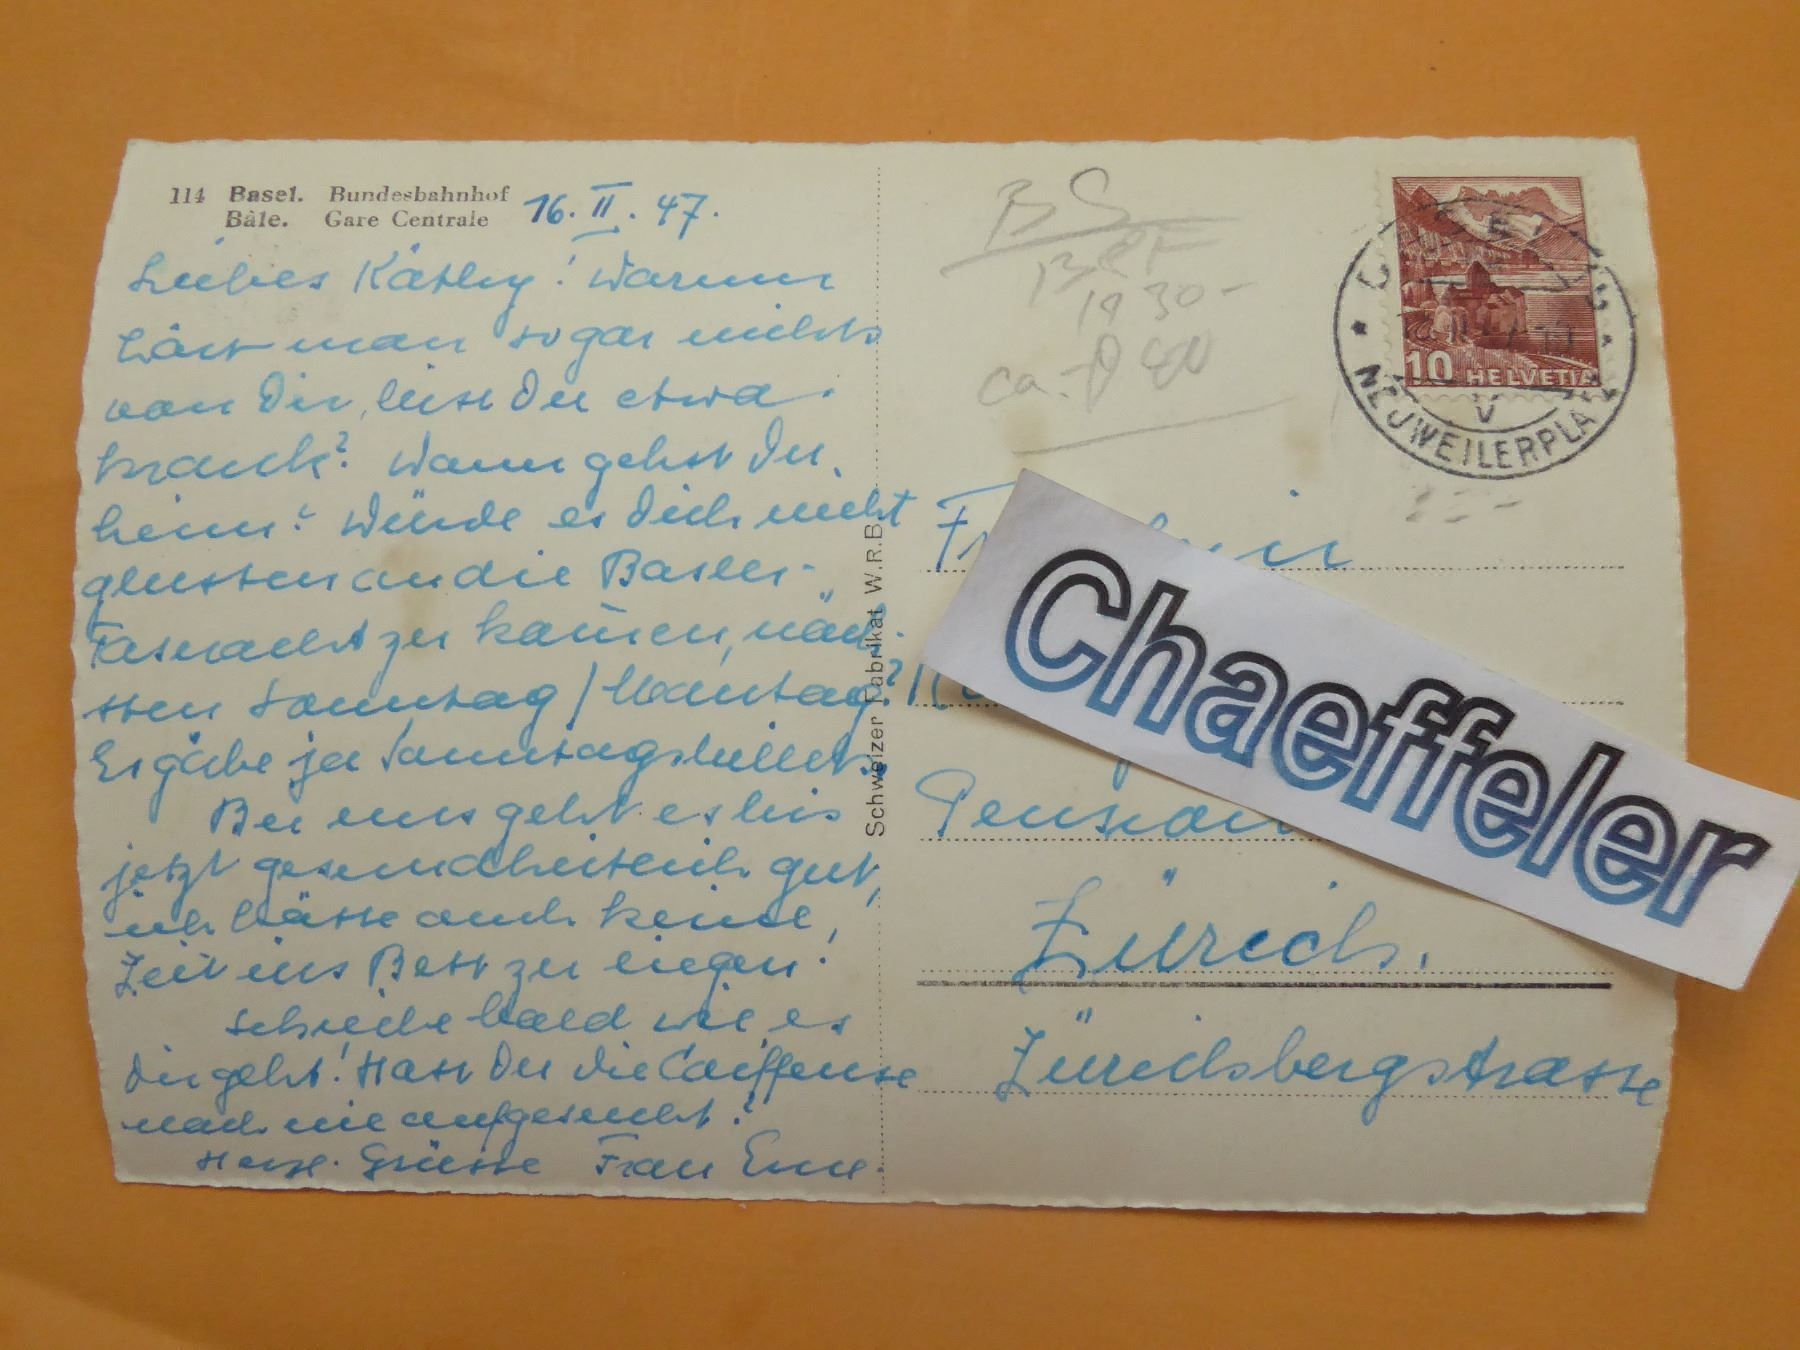 114 Basel. Bundesbahnhof
Bâle. Gare Centrale
16. II. 47.
Liebes Käthy! Warum
hört man so gar nichts
von Dir, bist Du etwa
krank? Wann gehst Du
heim? Würde es Dich nicht
glusten an die Basler-
Fasnacht zu kommen, näch-
sten Sonntag / Montag?
Es gäbe ja Sonntagsbillet.
Bei uns geht es bis
jetzt gesundheitlich gut,
ich hätte auch keine
Zeit ins Bett zu liegen!
Schreibe bald wie es
Dir geht! Hast Du die Coiffeuse
noch nie aufgesucht?
Herzl. Grüsse Frau
Schweizer Fabrikat W.R.B.
BS
1930-
ca.
10 HELVETIA
V
NEUWEILERPLATZ
Chaeffeler
Pension
Zürich.
Zürichbergstrasse